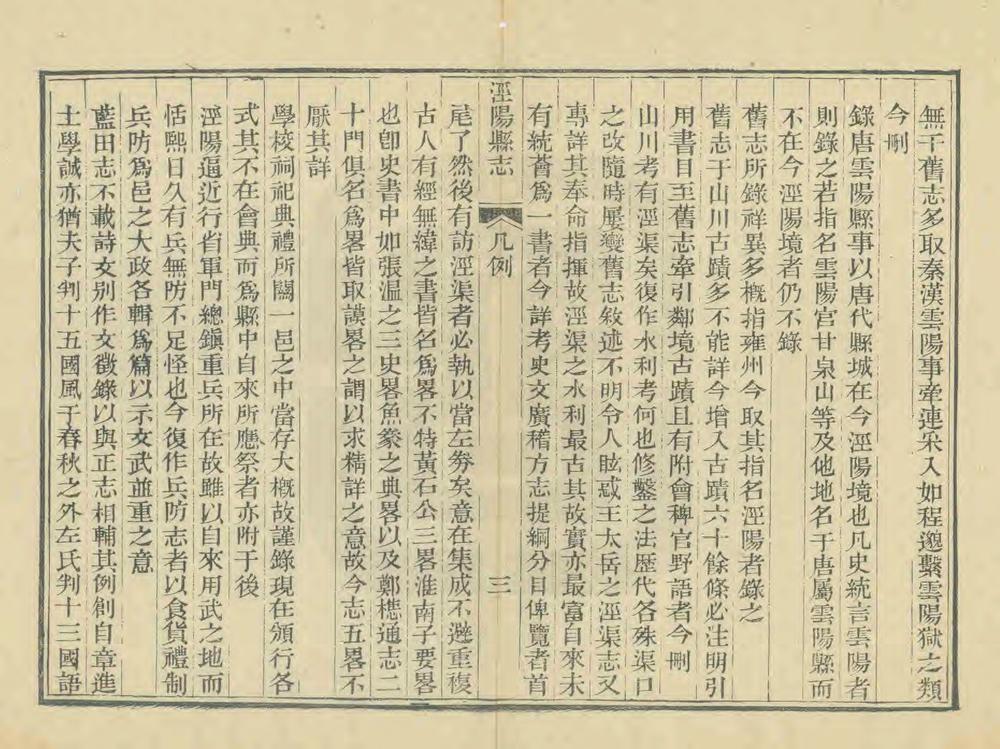 無干舊志多取秦漢雲陽事牽連采入如程邈繫雲陽獄之類
今刪
錄唐雲陽縣事以唐代縣城在今涇陽境也凡史統言雲陽者
則錄之若指名雲陽宮甘泉山等及他地名于唐屬雲陽縣而
不在今涇陽境者仍不錄
舊志所錄祥異多概指雍州今取其指名涇陽者錄之
舊志于山川古蹟多不能詳今增入古蹟六十餘條必注明引
用書目至舊志牽引鄰境古蹟且有附會稗官野語者今刪
山川考有涇渠矣復作水利考何也修鑿之法歷代各殊渠口
之改隨時屢變舊志敘述不明令人眩惑王太岳之涇渠志又
專詳其奉命指揮故涇渠之水利最古其故實亦最富自來未
有統薈爲一書者今詳考史文廣稽方志提綱分目俾覽者首
涇陽縣志 凡例 三
尾了然後有訪涇渠者必執以當左劵矣意在集成不避重複
古人有經無緯之書皆名爲畧不特黃石公三畧淮南子要畧
也卽史書中如張溫之三史畧魚豢之典畧以及鄭樵通志二
十門俱名爲畧皆取謨畧之謂以求精詳之意故今志五畧不
厭其詳
學校祠祀典禮所關一邑之中當存大概故謹錄現在頒行各
式其不在會典而爲縣中自來所應祭者亦附于後
涇陽逼近行省軍門總鎭重兵所在故雖以自來用武之地而
恬熙日久有兵無防不足怪也今復作兵防志者以食貨禮制
兵防爲邑之大政各輯爲篇以示文武並重之意
藍田志不載詩文別作文徵錄以與正志相輔其例創自章進
士學誠亦猶夫子判十五國風于春秋之外左氏判十三國語